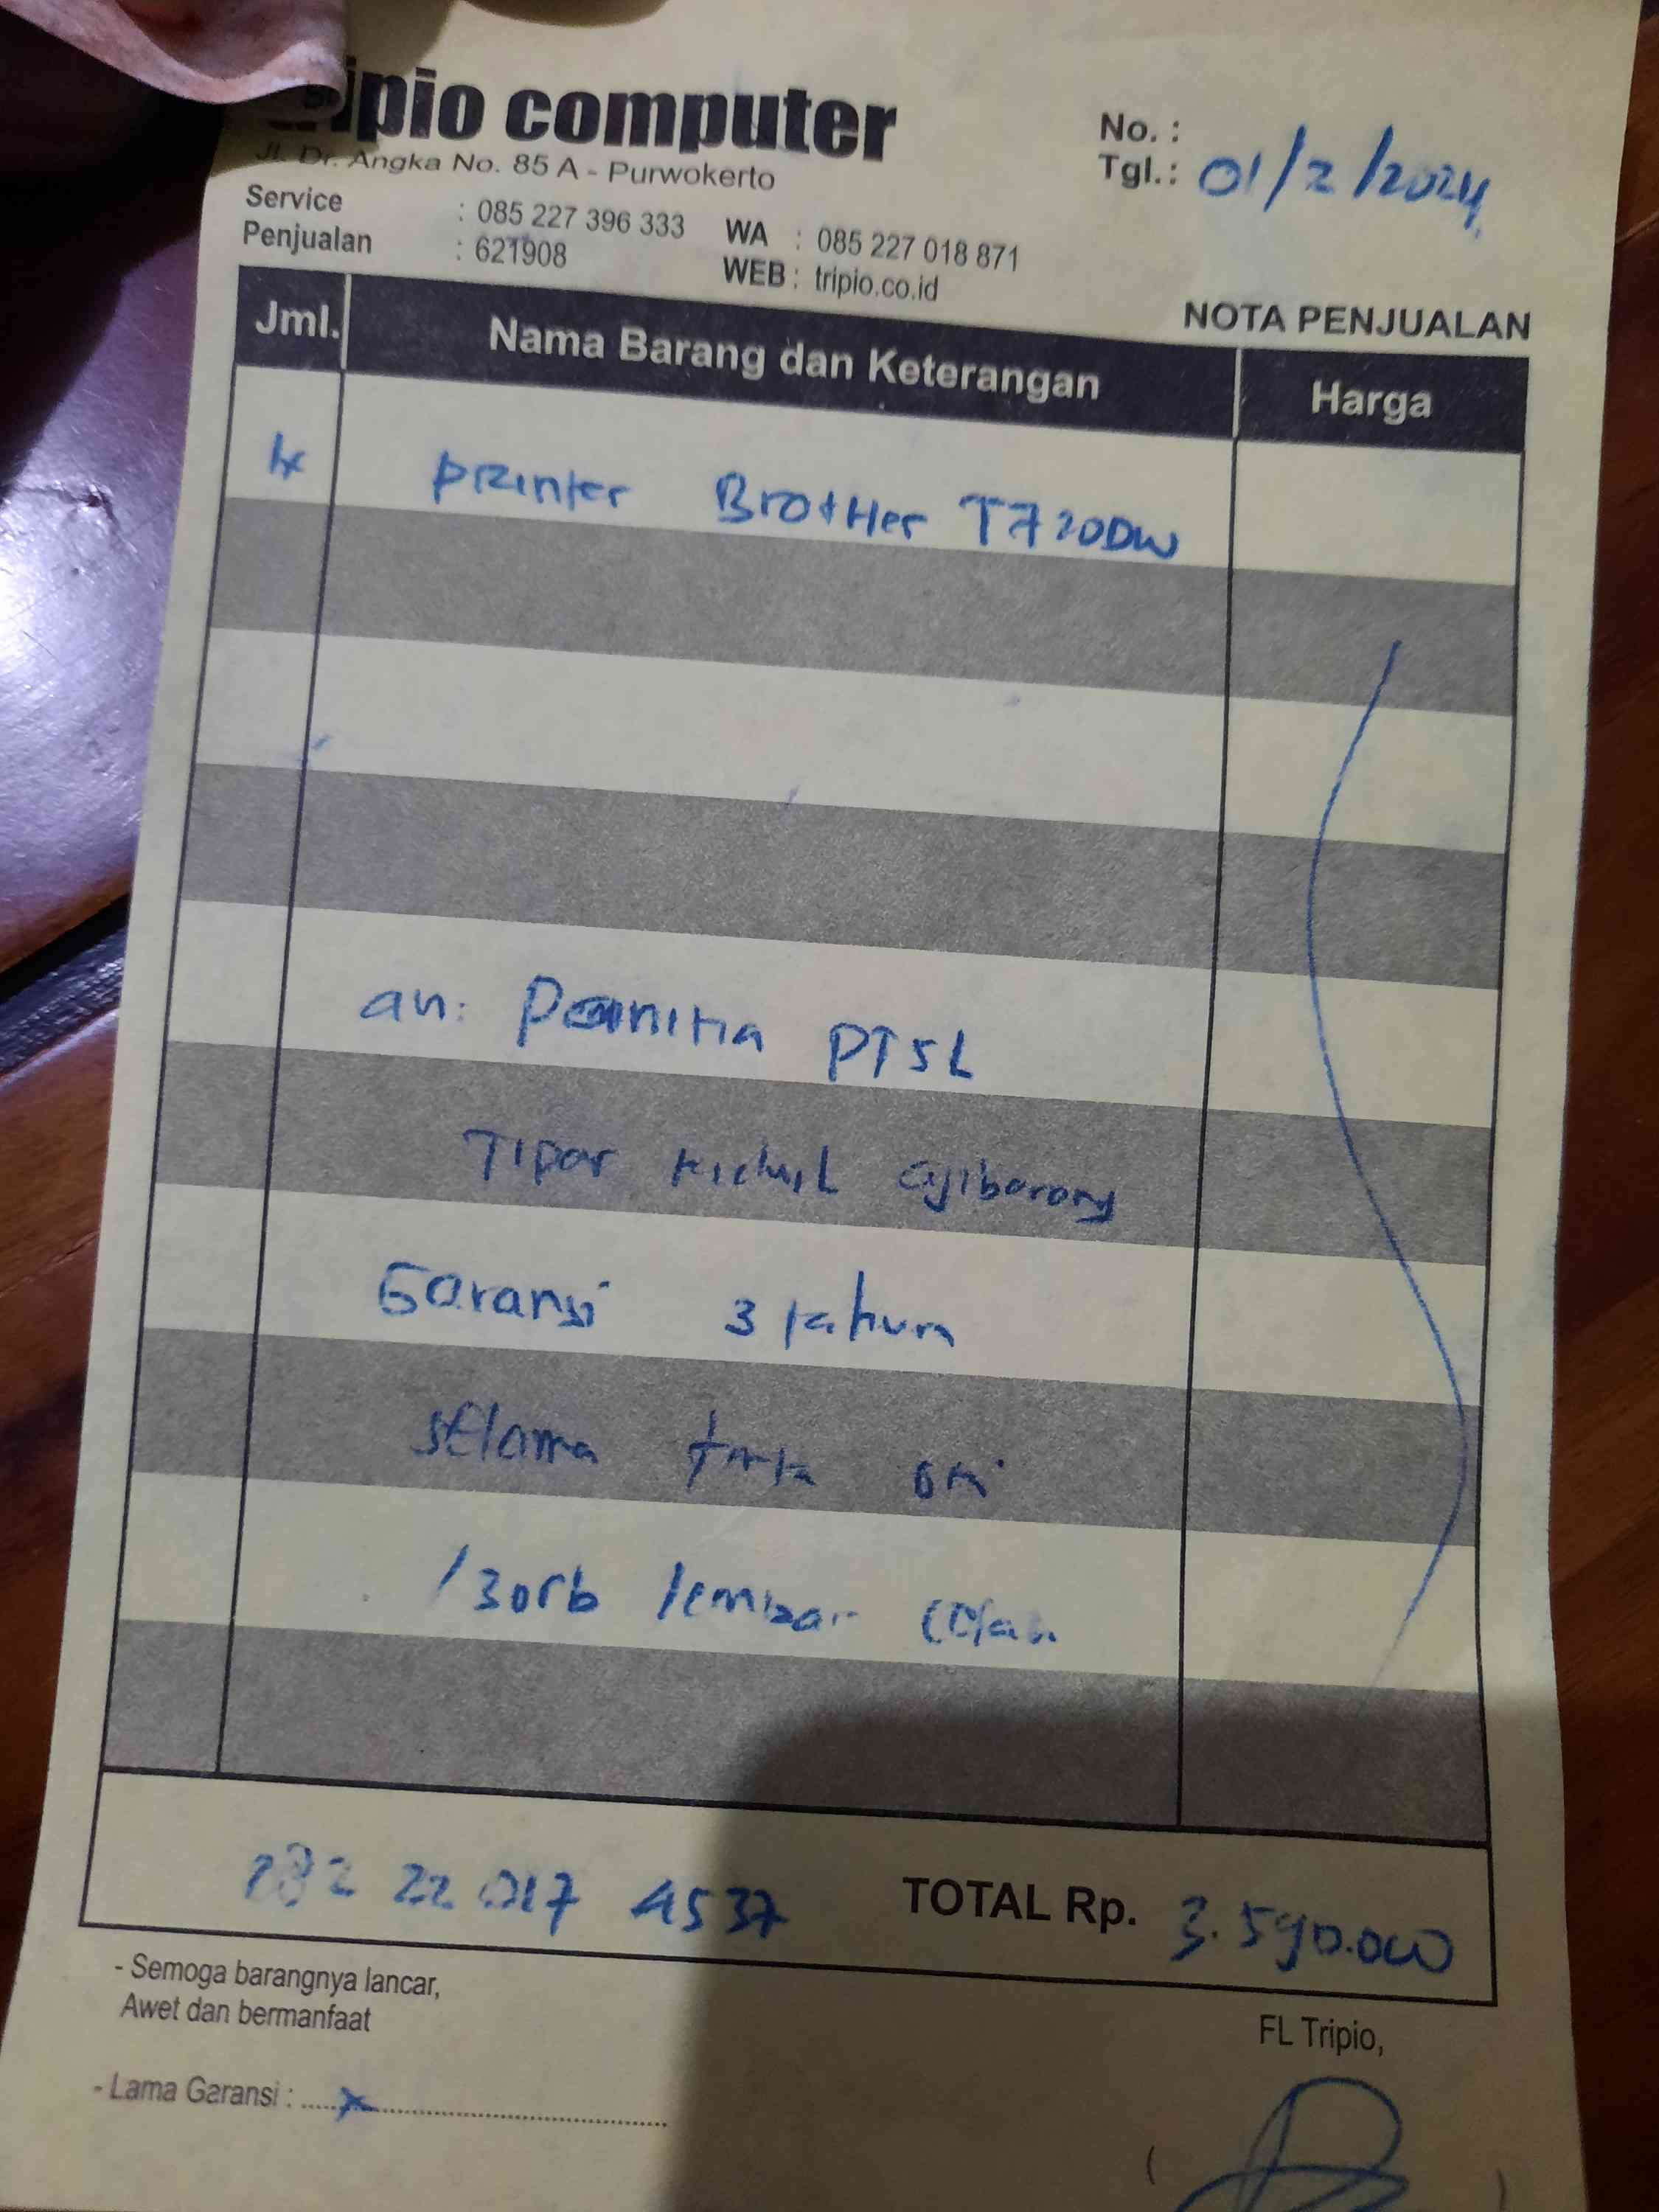 tripio computer
Jl. Dr. Angka No. 85 A - Purwokerto
Service : 085 227 396 333 WA : 085 227 018 871
Penjualan : 621908 WEB : tripio.co.id
No. :
Tgl.: 01/2/2024
NOTA PENJUALAN
Jml. Nama Barang dan Keterangan Harga
1x printer Brother T720DW
an: Panitia PTSL
Tipar Kidul ajibarang
Garansi 3 tahun
selama tinta ori
/30rb lembar cetak
22 017 4537 TOTAL Rp. 3.590.000
- Semoga barangnya lancar,
Awet dan bermanfaat
- Lama Garansi : x
FL Tripio,